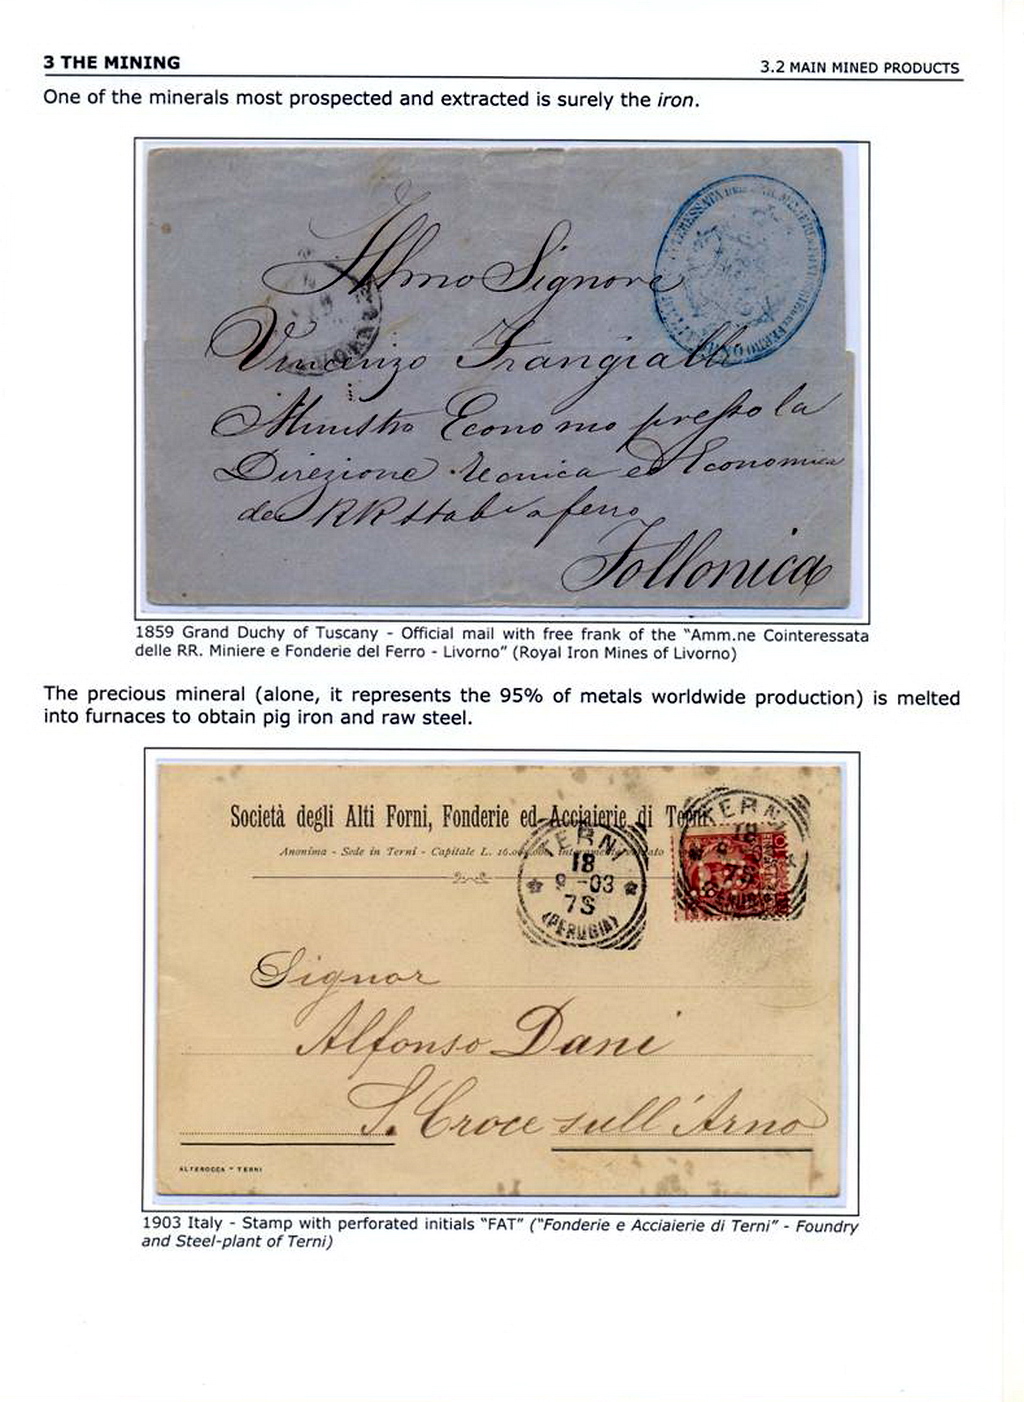 3 THE MINING
3.2 MAIN MINED PRODUCTS
One of the minerals most prospected and extracted is surely the iron.
Illmo Signore
Vincenzo Frangialli
Ministro Economo presso la
Direzione Tecnica ed Economica
de RR Stab a ferro
Follonica
1859 Grand Duchy of Tuscany - Official mail with free frank of the "Amm.ne Cointeressata
delle RR. Miniere e Fonderie del Ferro - Livorno" (Royal Iron Mines of Livorno)
The precious mineral (alone, it represents the 95% of metals worldwide production) is melted
into furnaces to obtain pig iron and raw steel.
Società degli Alti Forni, Fonderie ed Acciaierie di Terni
Anonima - Sede in Terni - Capitale L. 16.000.000 Interamente versato
TERNI
18
9 -03
7S
(PERUGIA)
TERNI
18
7S
Signor
Alfonso Dani
S. Croce sull'Arno
ALTEROCCA - TERNI
1903 Italy - Stamp with perforated initials "FAT" ("Fonderie e Acciaierie di Terni" - Foundry
and Steel-plant of Terni)